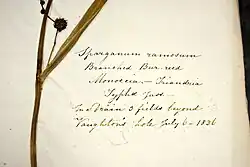 Sparganum ramosum
Branched Bur-reed
Monœcia — Triandria
Typhæ Juss.
In a Drain 3 fields beyond
Vaughton's hole July 6 - 1836